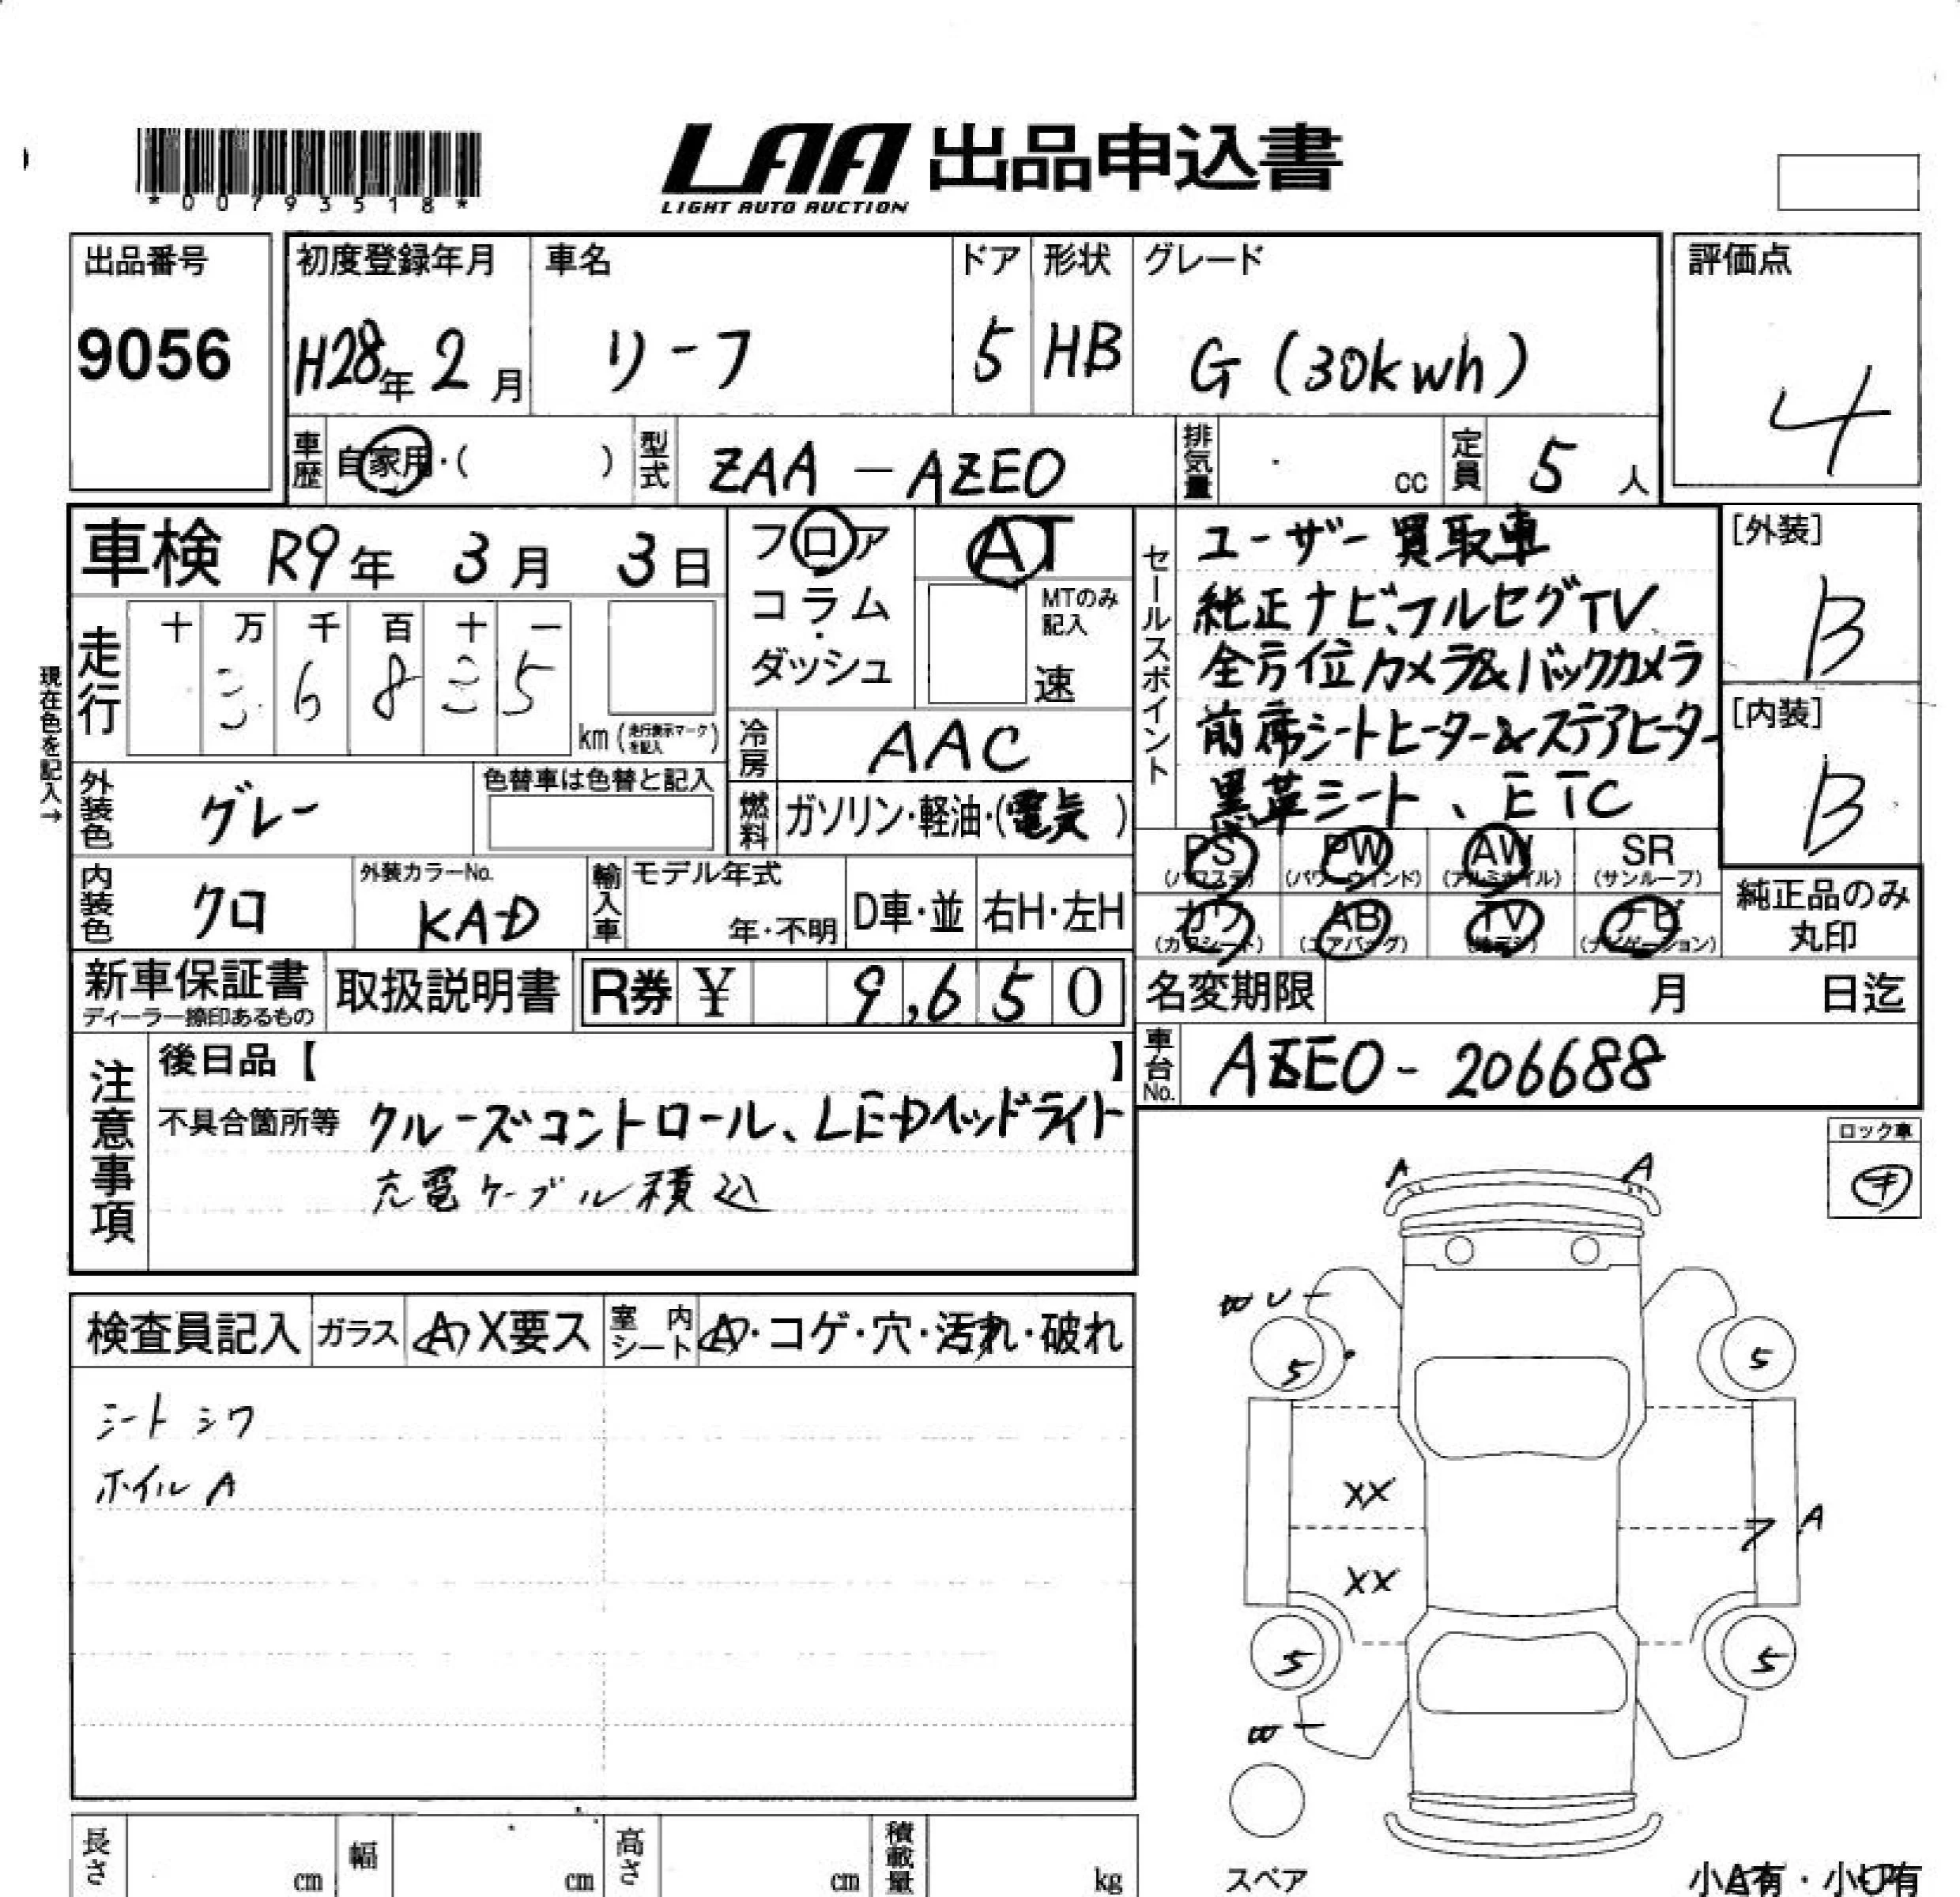 *00793518*
LAA 出品申込書
LIGHT AUTO AUCTION
出品番号
9056
初度登録年月
H28年 2月
車名
リーフ
ドア
5
形状
HB
グレード
G (30kwh)
評価点
4
車歴
自家用・( )
型式
ZAA - AZEO
排気量
cc
定員
5人
車検 R9年 3月 3日
フロア
コラム
・
ダッシュ
AT
MTのみ
記入
速
セールスポイント
ユーザー買取車
純正ナビ、フルセグTV
全方位カメラ&バックカメラ
前席シートヒーター&ステアヒーター
黒革シート、ETC
[外装]
B
[内装]
B
現在色を記入→
走行
十 万 千 百 十 一
三 6 8 三 5
km (走行表示マークを記入)
冷房
AAC
燃料
ガソリン・軽油・(電気)
外装色
グレー
色替車は色替と記入
内装色
クロ
外装カラーNo.
KAD
輸入車
モデル年式
年・不明
D車・並
右H・左H
PS
(パワステ)
PW
(パワーウィンド)
AW
(アルミホイル)
SR
(サンルーフ)
カワ
(カワシート)
AB
(エアバッグ)
TV
ナビ
(ナビゲーション)
純正品のみ
丸印
新車保証書
ディーラー捺印あるもの
取扱説明書
R券 ¥ 9,650
名変期限 月 日迄
車台No.
AZEO-206688
注意事項
後日品【 】
不具合箇所等 クルーズコントロール、LEDヘッドライト
充電ケーブル積込
ロック車
検査員記入
ガラス
A X要ス
室内シート
A・コゲ・穴・汚れ・破れ
シート シワ
ホイル A
A A
5 5
XX
A
XX
5 5
スペア
長さ cm
幅 cm
高さ cm
積載量 kg
小A有・小U有